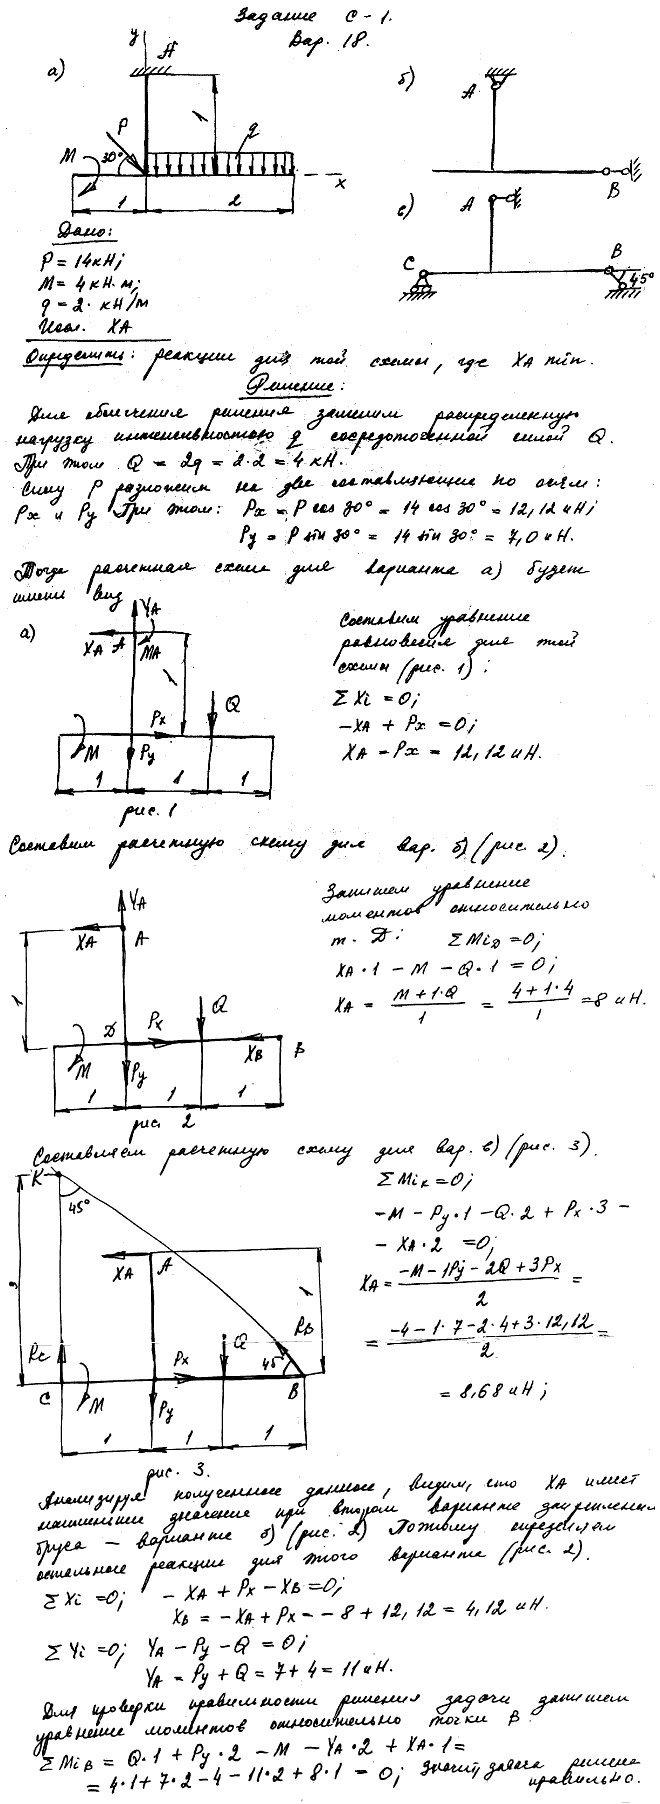 Задание С-1.
Вар. 18.
а)
y
A
P
M
30°
q
1
x
1
2
б)
A
B
в)
A
C
B
45°
Дано:
P = 14 кН;
M = 4 кН·м;
q = 2 · кН/м
Иссл. XA
Определить: реакции для той схемы, где XA min.
Решение:
Для облегчения решения заменим распределенную
нагрузку интенсивностью q сосредоточенной силой Q.
При этом Q = 2q = 2·2 = 4 кН.
Силу P разложим на две составляющие по осям:
Px и Py. При этом: Px = P cos 30° = 14 cos 30° = 12,12 кН;
Py = P sin 30° = 14 sin 30° = 7,0 кН.
Тогда расчетная схема для варианта а) будет
иметь вид
а)
YA
XA
A
MA
1
Px
Q
M
Py
1
1
1
рис. 1
Составим уравнение
равновесия для этой
схемы (рис. 1):
ΣXi = 0;
-XA + Px = 0;
XA = Px = 12,12 кН.
Составим расчетную схему для вар. б) (рис. 2).
YA
XA
A
1
D
Px
Q
M
Py
XB
B
1
1
1
рис. 2
Запишем уравнение
моментов относительно
т. D: ΣMiD = 0;
XA·1 - M - Q·1 = 0;
XA = (M+1·Q)/1 = (4+1·4)/1 = 8 кН.
Составляем расчетную схему для вар. в) (рис. 3).
K
45°
3
XA
A
1
RC
Q
RB
Px
45°
C
M
Py
B
1
1
1
рис. 3.
ΣMiK = 0;
-M - Py·1 - Q·2 + Px·3 -
- XA·2 = 0;
XA = (-M - 1Py - 2Q + 3Px)/2 =
= (-4 - 1·7 - 2·4 + 3·12,12)/2 =
= 8,68 кН;
Анализируя полученное данное, видим, что XA имеет
наименьшее значение при втором варианте закрепления
бруса - варианте б) (рис. 2) Поэтому определяем
остальные реакции для этого варианта (рис. 2).
ΣXi = 0; - XA + Px - XB = 0;
XB = -XA + Px = -8 + 12,12 = 4,12 кН.
ΣYi = 0; YA - Py - Q = 0;
YA = Py + Q = 7 + 4 = 11 кН.
Для проверки правильности решения задачи запишем
уравнение моментов относительно точки B.
ΣMiB = Q·1 + Py·2 - M - YA·2 + XA·1 =
= 4·1 + 7·2 - 4 - 11·2 + 8·1 = 0; Значит, задача решена
правильно.